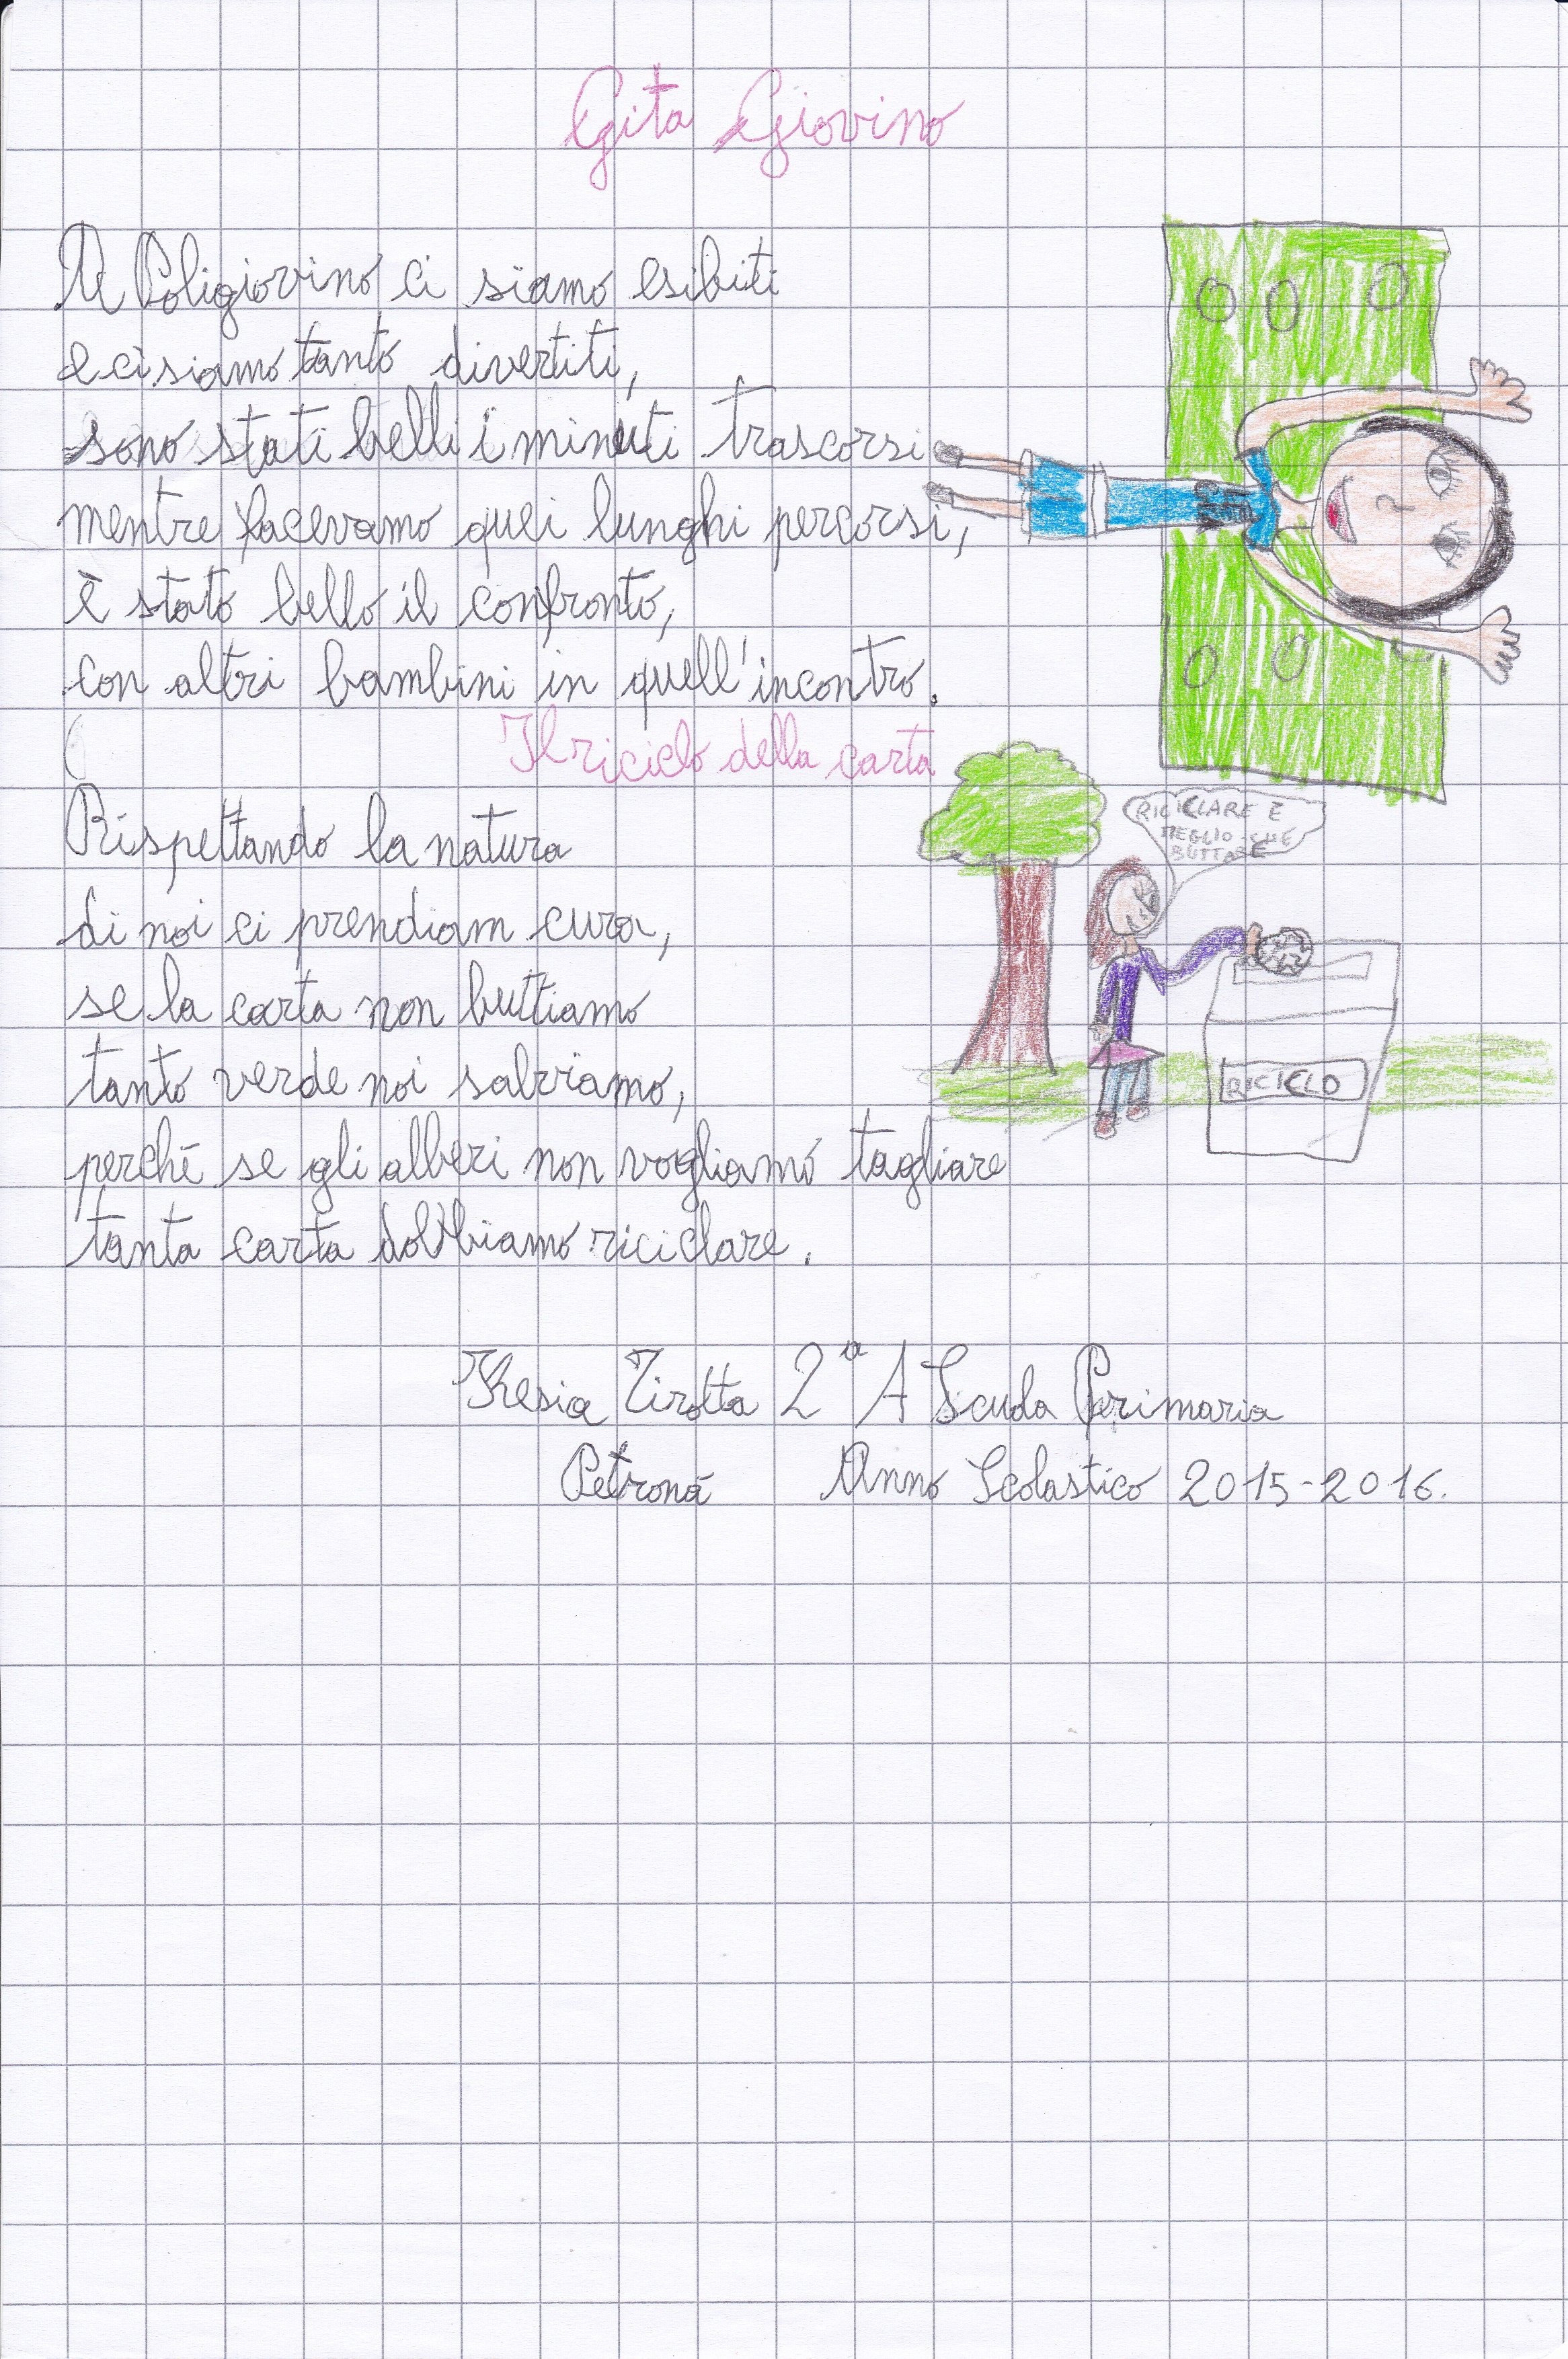 Gita Giovino
A Poligiovino ci siamo esibiti
e ci siamo tanto divertiti,
sono stati belli i minuti trascorsi
mentre facevamo quei lunghi percorsi,
è stato bello il confronto,
con altri bambini in quell'incontro.
Il riciclo della carta
Rispettando la natura
di noi ci prendiam cura,
se la carta non buttiamo
tanto verde noi salviamo,
perché se gli alberi non vogliamo tagliare
tanta carta dobbiamo riciclare.
RICICLARE È
MEGLIO CHE
BUTTARE
RICICLO
Kesia Tirotta 2ª A Scuola Primaria
Petronà Anno Scolastico 2015-2016.